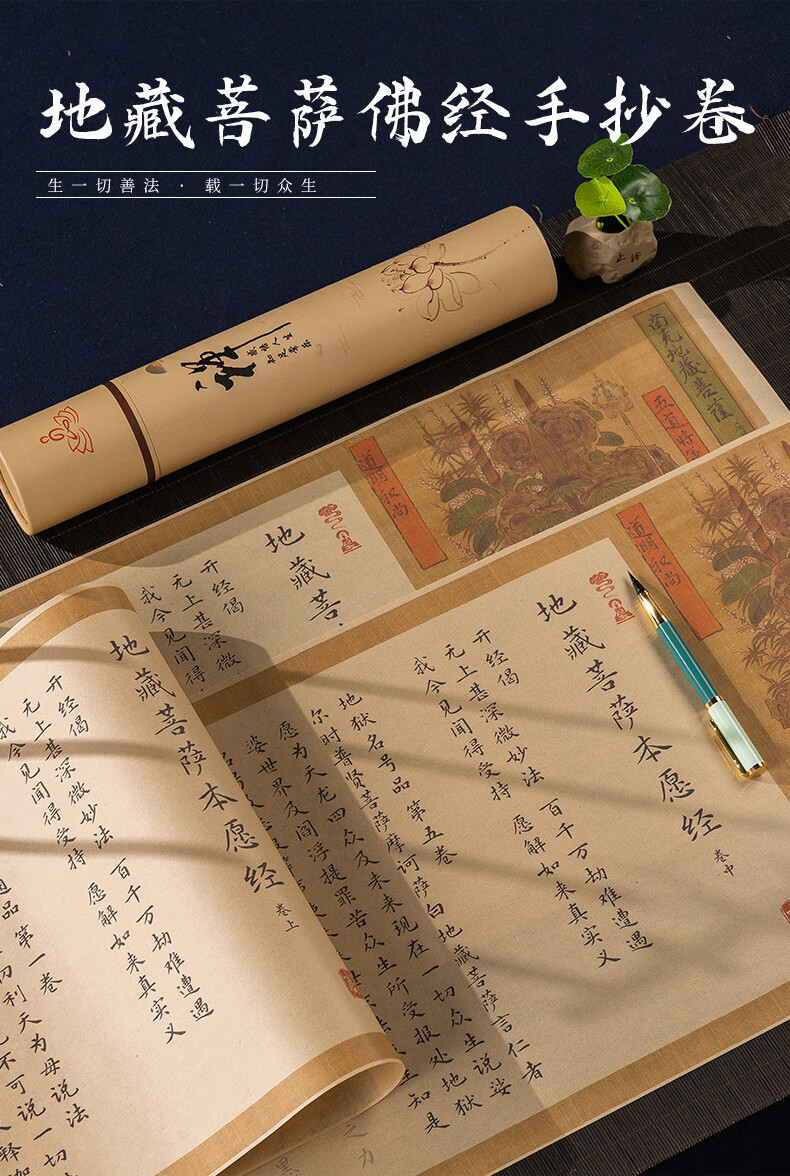 地藏菩萨佛经手抄卷
生一切善法 · 载一切众生
止语
禅
感悟人生
南无地藏菩薩
五官
道明和尚
地藏菩
开经偈
无上甚深微
我今见闻得
道明和尚
地藏菩萨本愿经 卷中
开经偈
无上甚深微妙法 百千万劫难遭遇
我今见闻得受持 愿解如来真实义
地狱名号品第五卷
尔时普贤菩萨摩诃萨白地藏菩萨言仁者
愿为天龙四众及未来现在一切众生说娑
婆世界及阎浮提罪苦众生所受报处地狱
知是
之力
地藏菩萨本愿经 卷上
开经偈
无上甚深微妙法 百千万劫难遭遇
我今见闻得受持 愿解如来真实义
品第一卷
利天为母说法
不可说一切